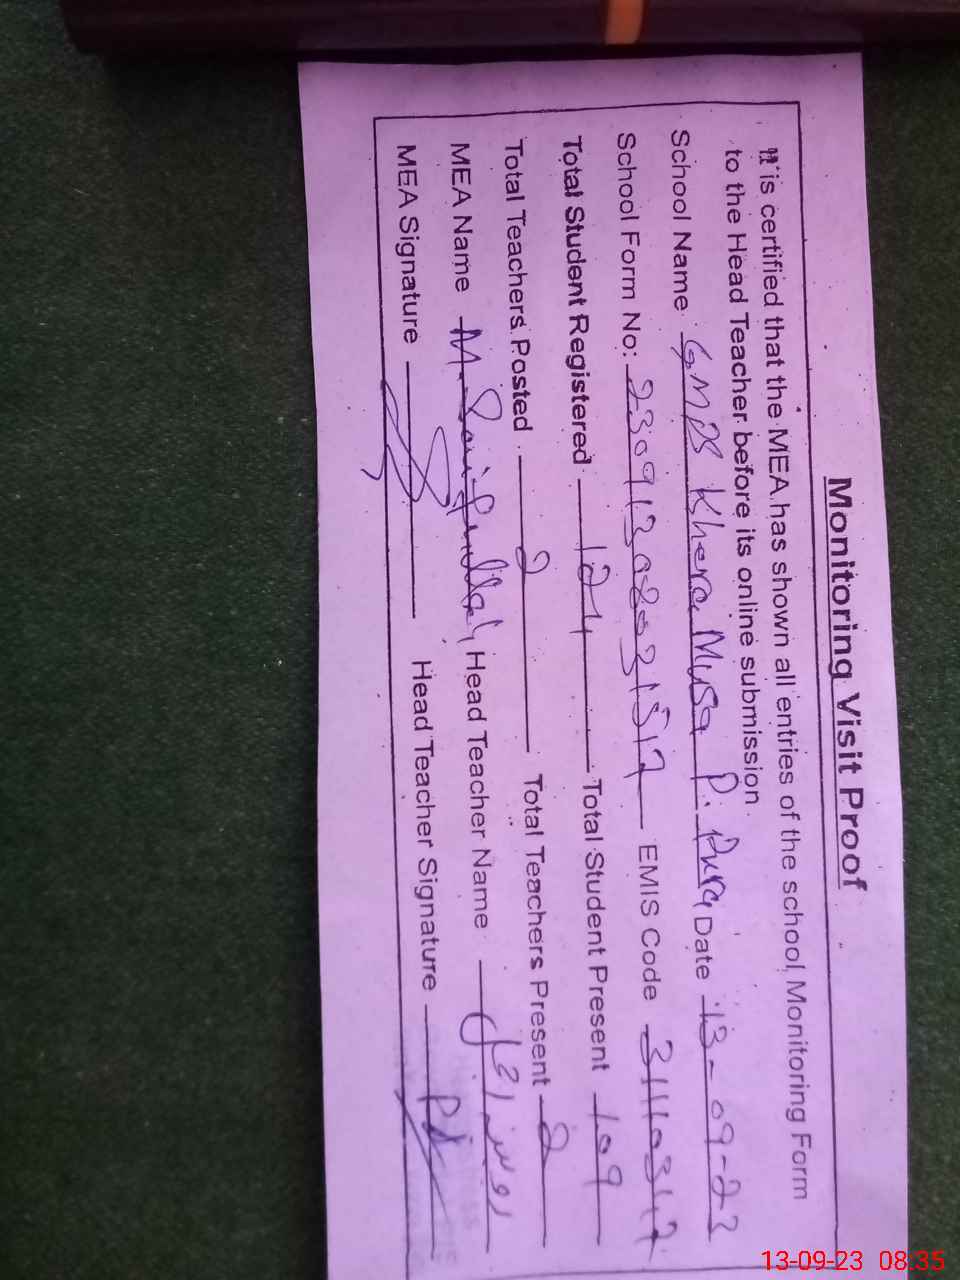 Monitoring Visit Proof
It is certified that the MEA has shown all entries of the school Monitoring Form
to the Head Teacher before its online submission.
School Name GMPS Khera Musa P. Pura Date 13-09-23
School Form No: 23091308031517 EMIS Code 31110317
Total Student Registered 124 Total Student Present 109
Total Teachers Posted 2 Total Teachers Present 2
MEA Name M. Head Teacher Name
MEA Signature Head Teacher Signature
13-09-23 08:35